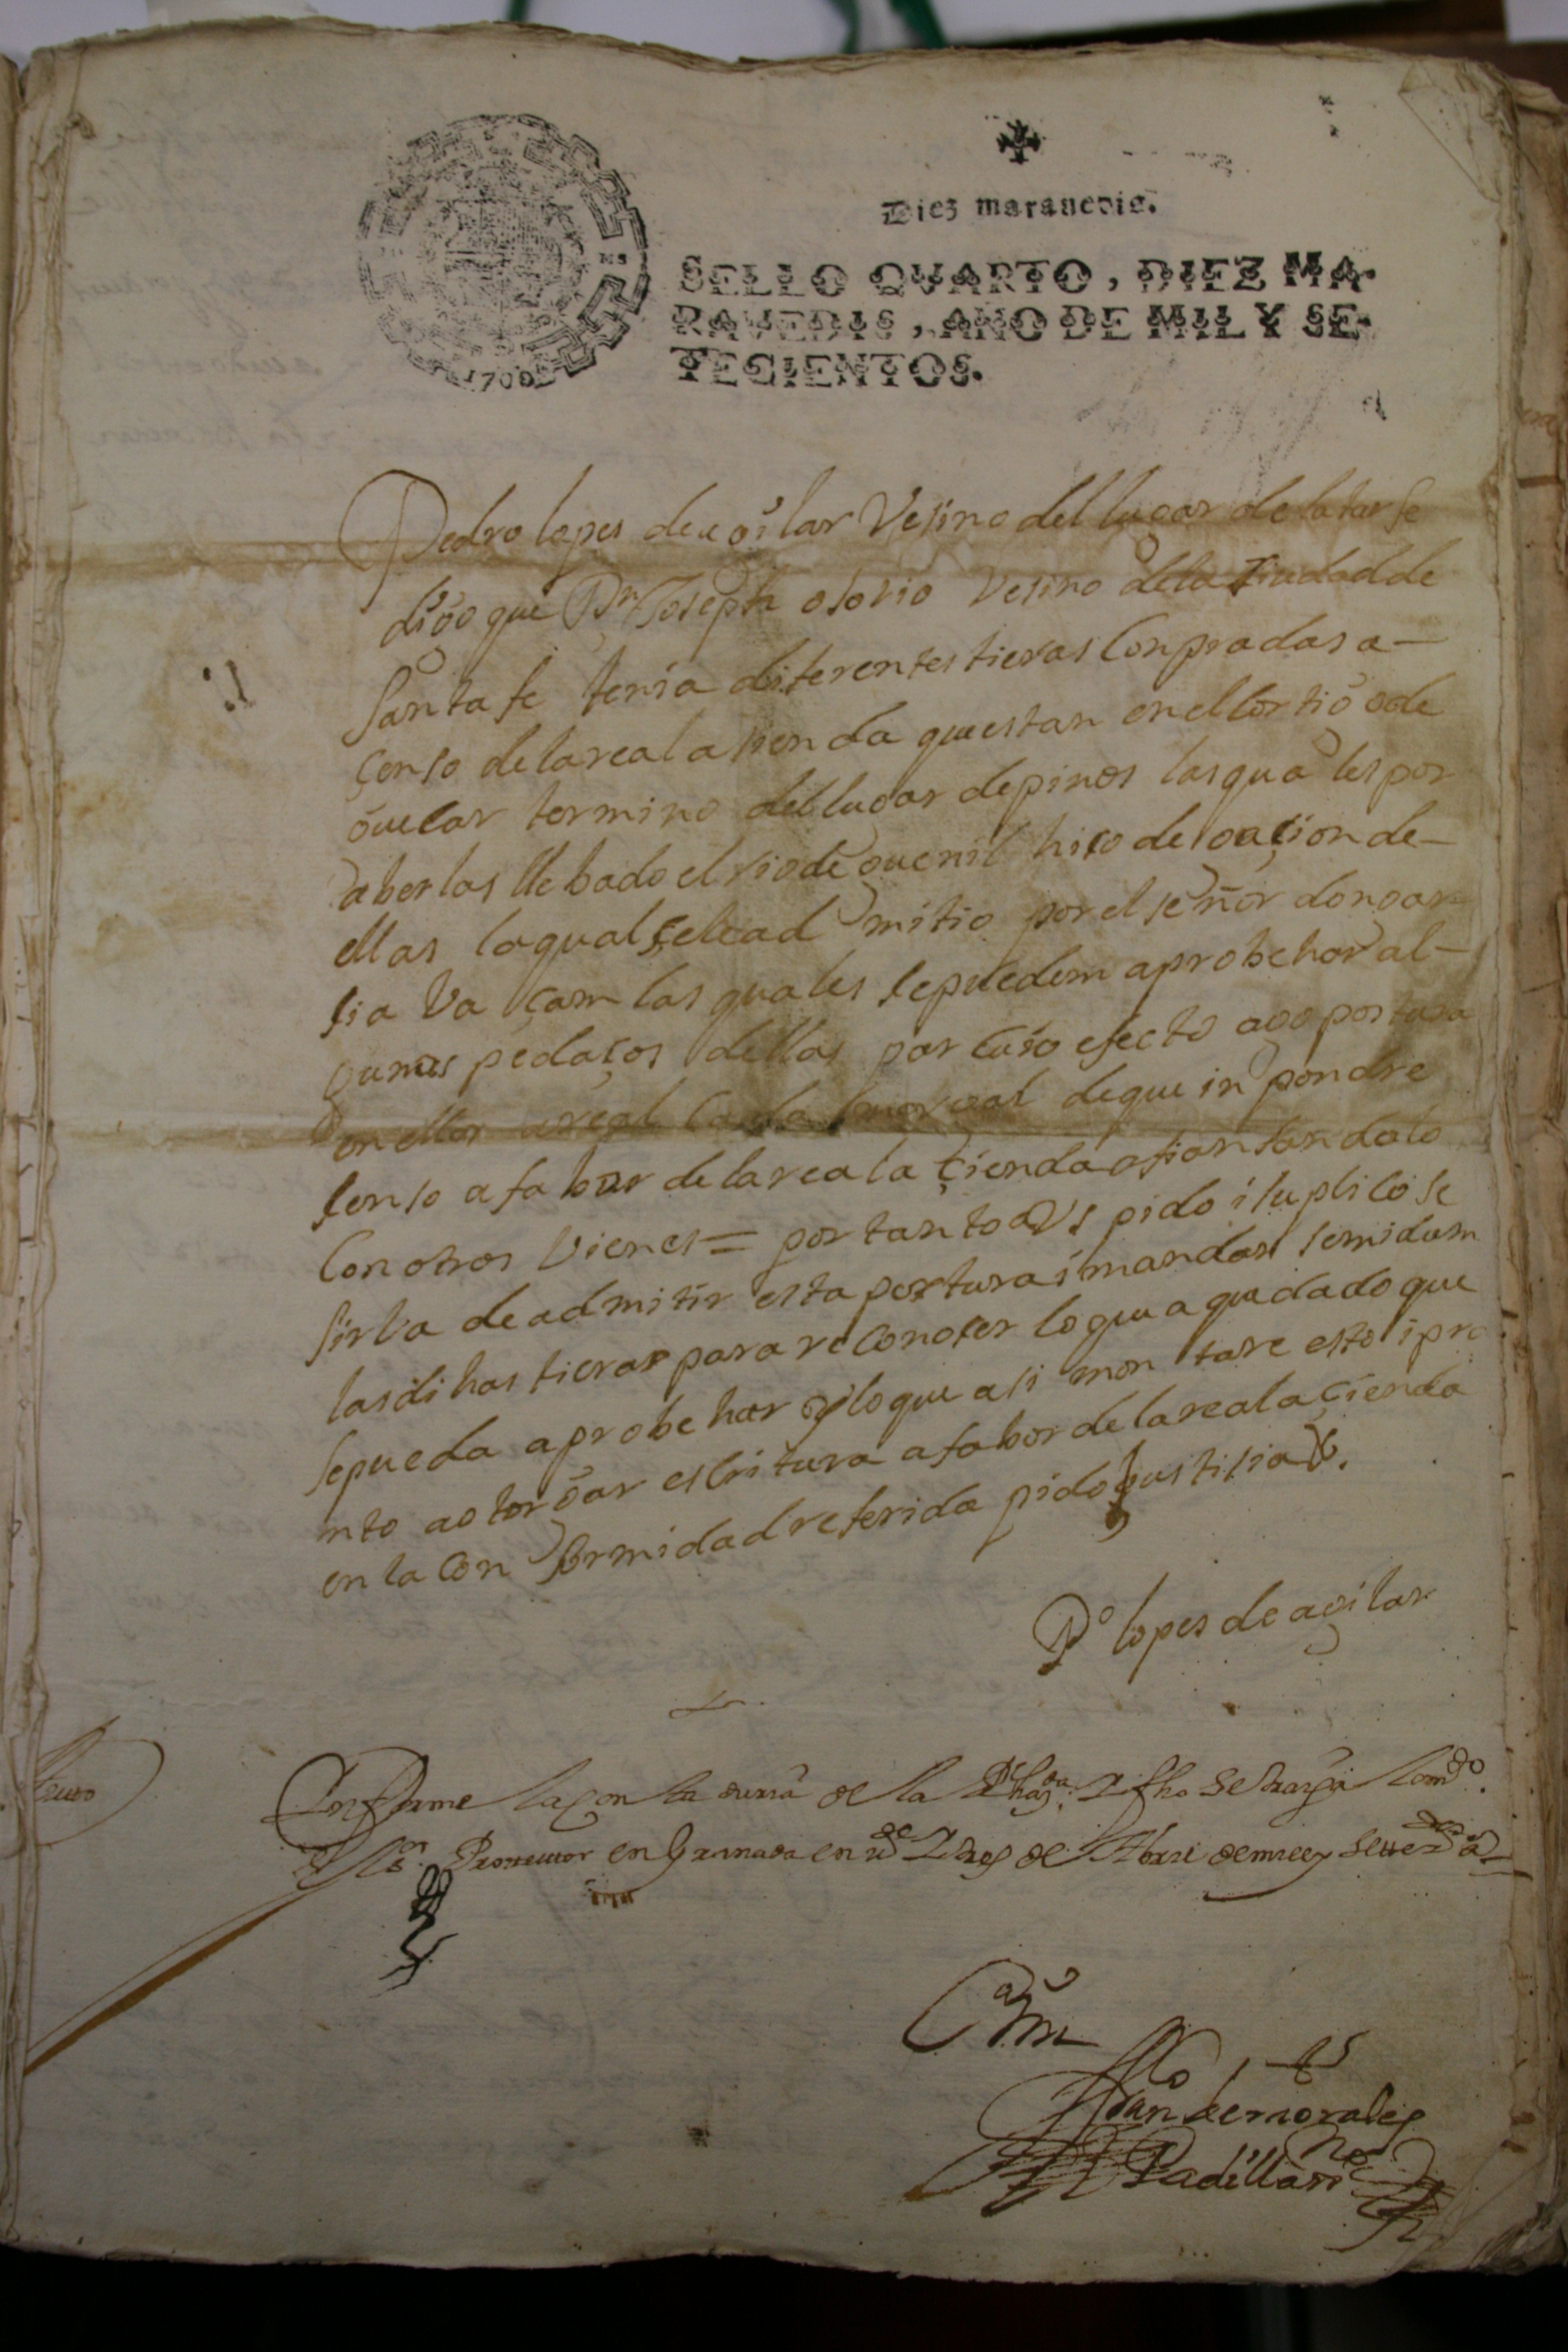 Diez marauedis.
SELLO QVARTO, DIEZ MA-
RAVEDIS, AÑO DE MIL Y SE-
TECIENTOS.
1700
Pedro lopes de agilar Vesino del lugar de latarfe
digo que Dn Joseph osorio Vesino de la ciudad de
Santa fe tenia diferentes tieras Conpradas a-
çenso de la real asienda questan en el Cortigo de
termino del lugar de pinos las quales por
aberlas llebado el rio de guenil hiço desaçion de-
ellas la qual se le ad mitio por el señor don gar-
sia Va çam las quales se pueden aprobehar al-
gunos pedaços dellas por cuio efecto ago postura
en ellos a real cada marjal de que in pondre
senso a fabor de la real açienda afiansandolo
Con otros Vienes = por tanto a VS pido i suplico se
sirba de admitir esta postura i mandar se midam
las dihas tieras para reconoser lo qua quedado que
se pueda aprobehar y lo que asi mon tare esto i pro
nto a otorgar escritura a fabor de la real açienda
en la con formidad referida pido justisia &.
Po lopes de agilar
Informe la contaduria de la Rl hazda I fho se traiga
Sr en Granada en Tres de Abril de mill y sett
Juan de morales
Padilla